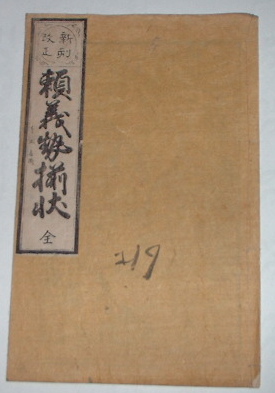 新刻
改正
頼義勢揃状
全